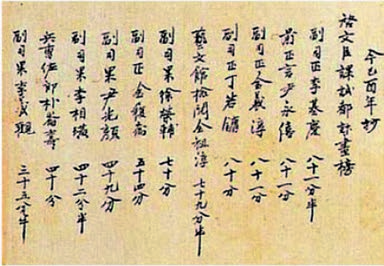 今己酉年抄
啓文臣課試都計畫榜
副司正李基慶 八十一分半
前正言尹永僖 八十一分
副司正金羲淳 八十一分
副司正丁若鏞 八十分
藝文館檢閱金祖淳 七十九分半
副司果徐榮輔 七十分
副司正金履喬 五十四分
副司果尹光顔 四十九分
副司果李相璜 四十二分半
兵曹佐郎朴崙壽 四十分
副司果李羲觀 三十五分半